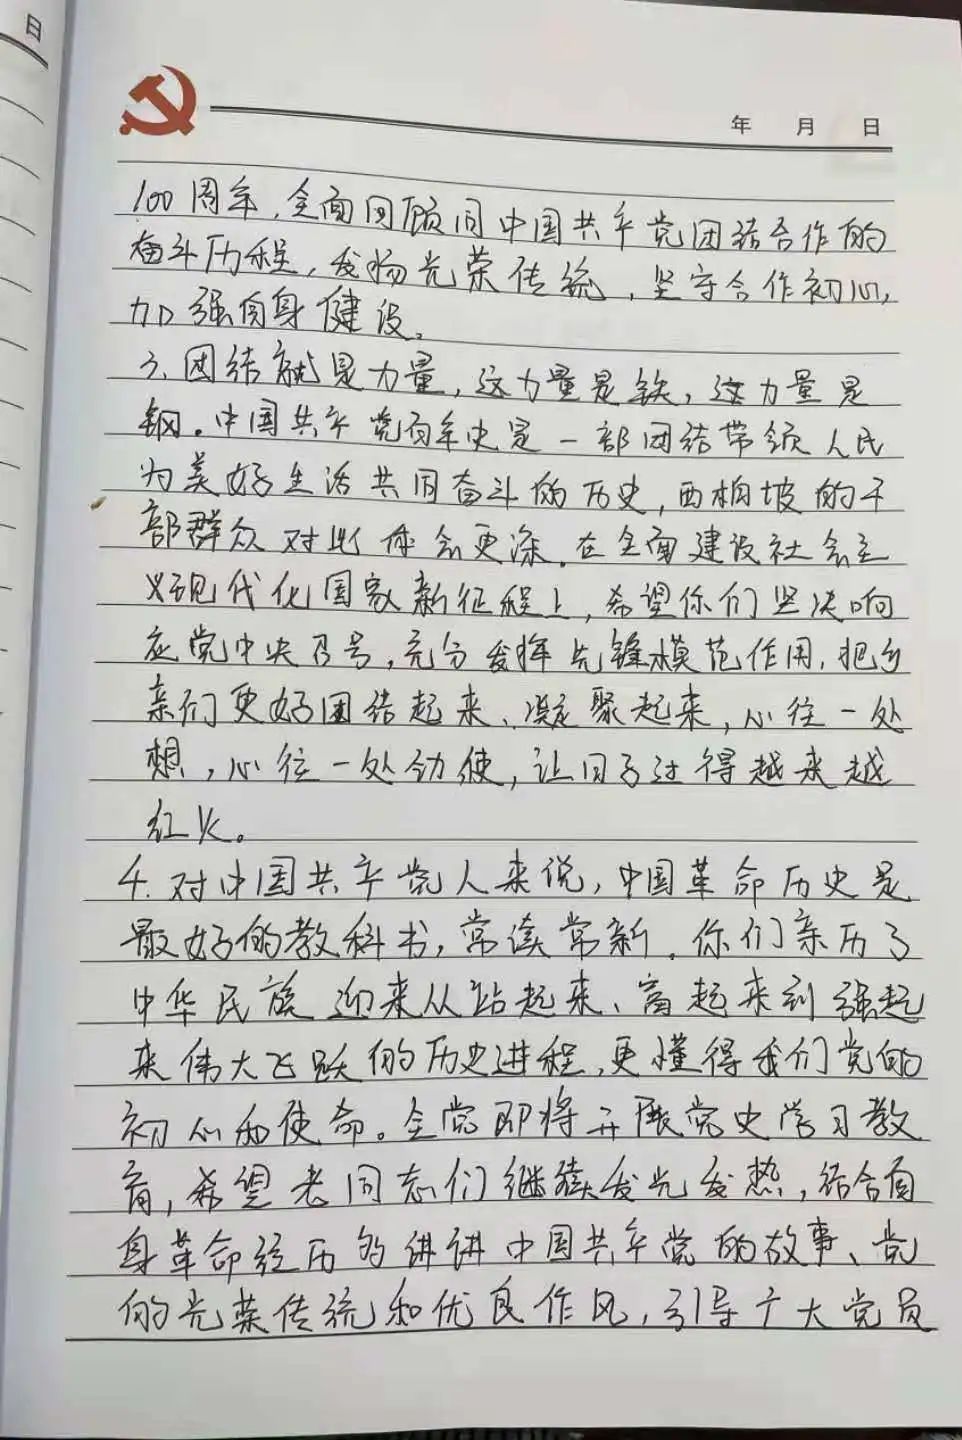 日
年 月 日
100周年,全面回顾同中国共产党团结合作的
奋斗历程,发扬光荣传统,坚守合作初心,
加强自身建设。
3.团结就是力量,这力量是铁,这力量是
钢。中国共产党百年史是一部团结带领人民
为美好生活共同奋斗的历史,西柏坡的干
部群众对此体会更深。在全面建设社会主
义现代化国家新征程上,希望你们坚决响
应党中央号号,充分发挥先锋模范作用,把乡
亲们更好团结起来、凝聚起来,心往一处
想,心往一处劲使,让日子过得越来越
红火。
4.对中国共产党人来说,中国革命历史是
最好的教科书,常读常新。你们亲历了
中华民族迎来从站起来、富起来到强起
来伟大飞跃的历史进程,更懂得我们党的
初心和使命。全党即将开展党史学习教
育,希望老同志们继续发光发热,结合自
身革命经历多讲讲中国共产党的故事、党
的光荣传统和优良作风,引导广大党员